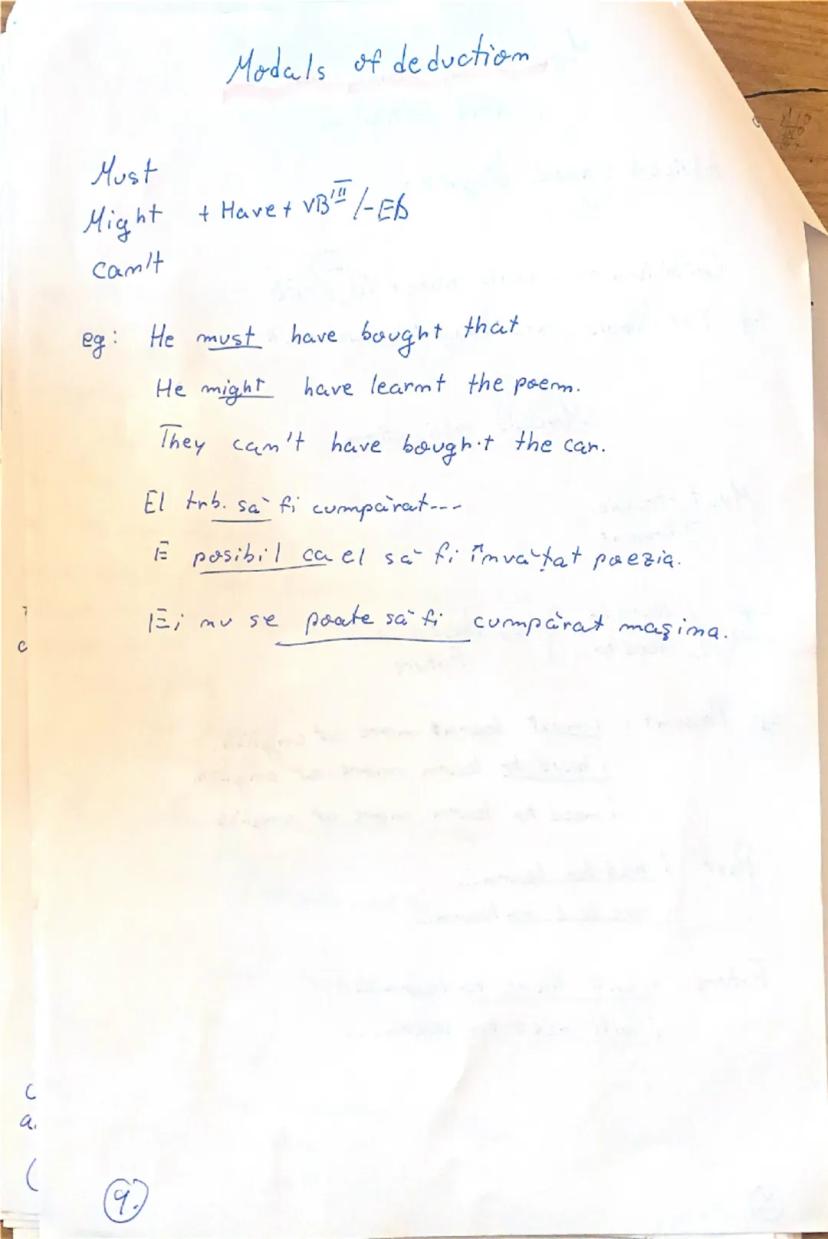 Modals of deduction
Must
Might + Have + VB III /-ED
can't
eg: He must have bought that
He might have learnt the poem.
They can't have bought the car.
El trb. să fi cumpărat---
E posibil ca el să fi învățat poezia.
Ei nu se poate să fi cumpărat mașina.
9.